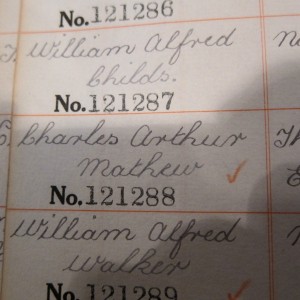 No.121286
William Alfred
Childs.
No.121287
Charles Arthur
Mathew ✓
No.121288
William Alfred
Walker
No.121289 ✓